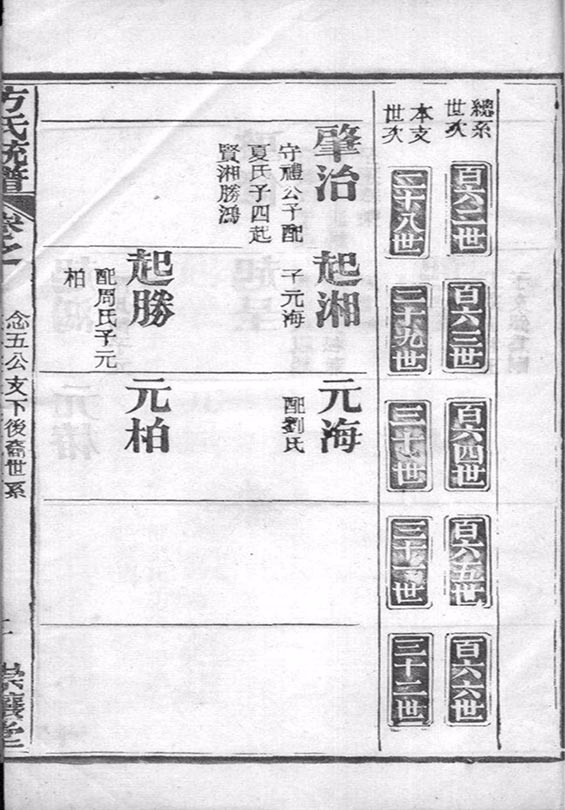 總系
世次
本支
世次
百六二世
二十八世
百六三世
二十九世
百六四世
三十世
百六五世
三十一世
百六六世
三十二世
肇治
守禮公子配
夏氏子四起
賢湘勝鴻
起湘
子元海
起勝
配周氏子元
柏
元海
配劉氏
元柏
方氏統譜
卷之一
念五公支下後裔世系